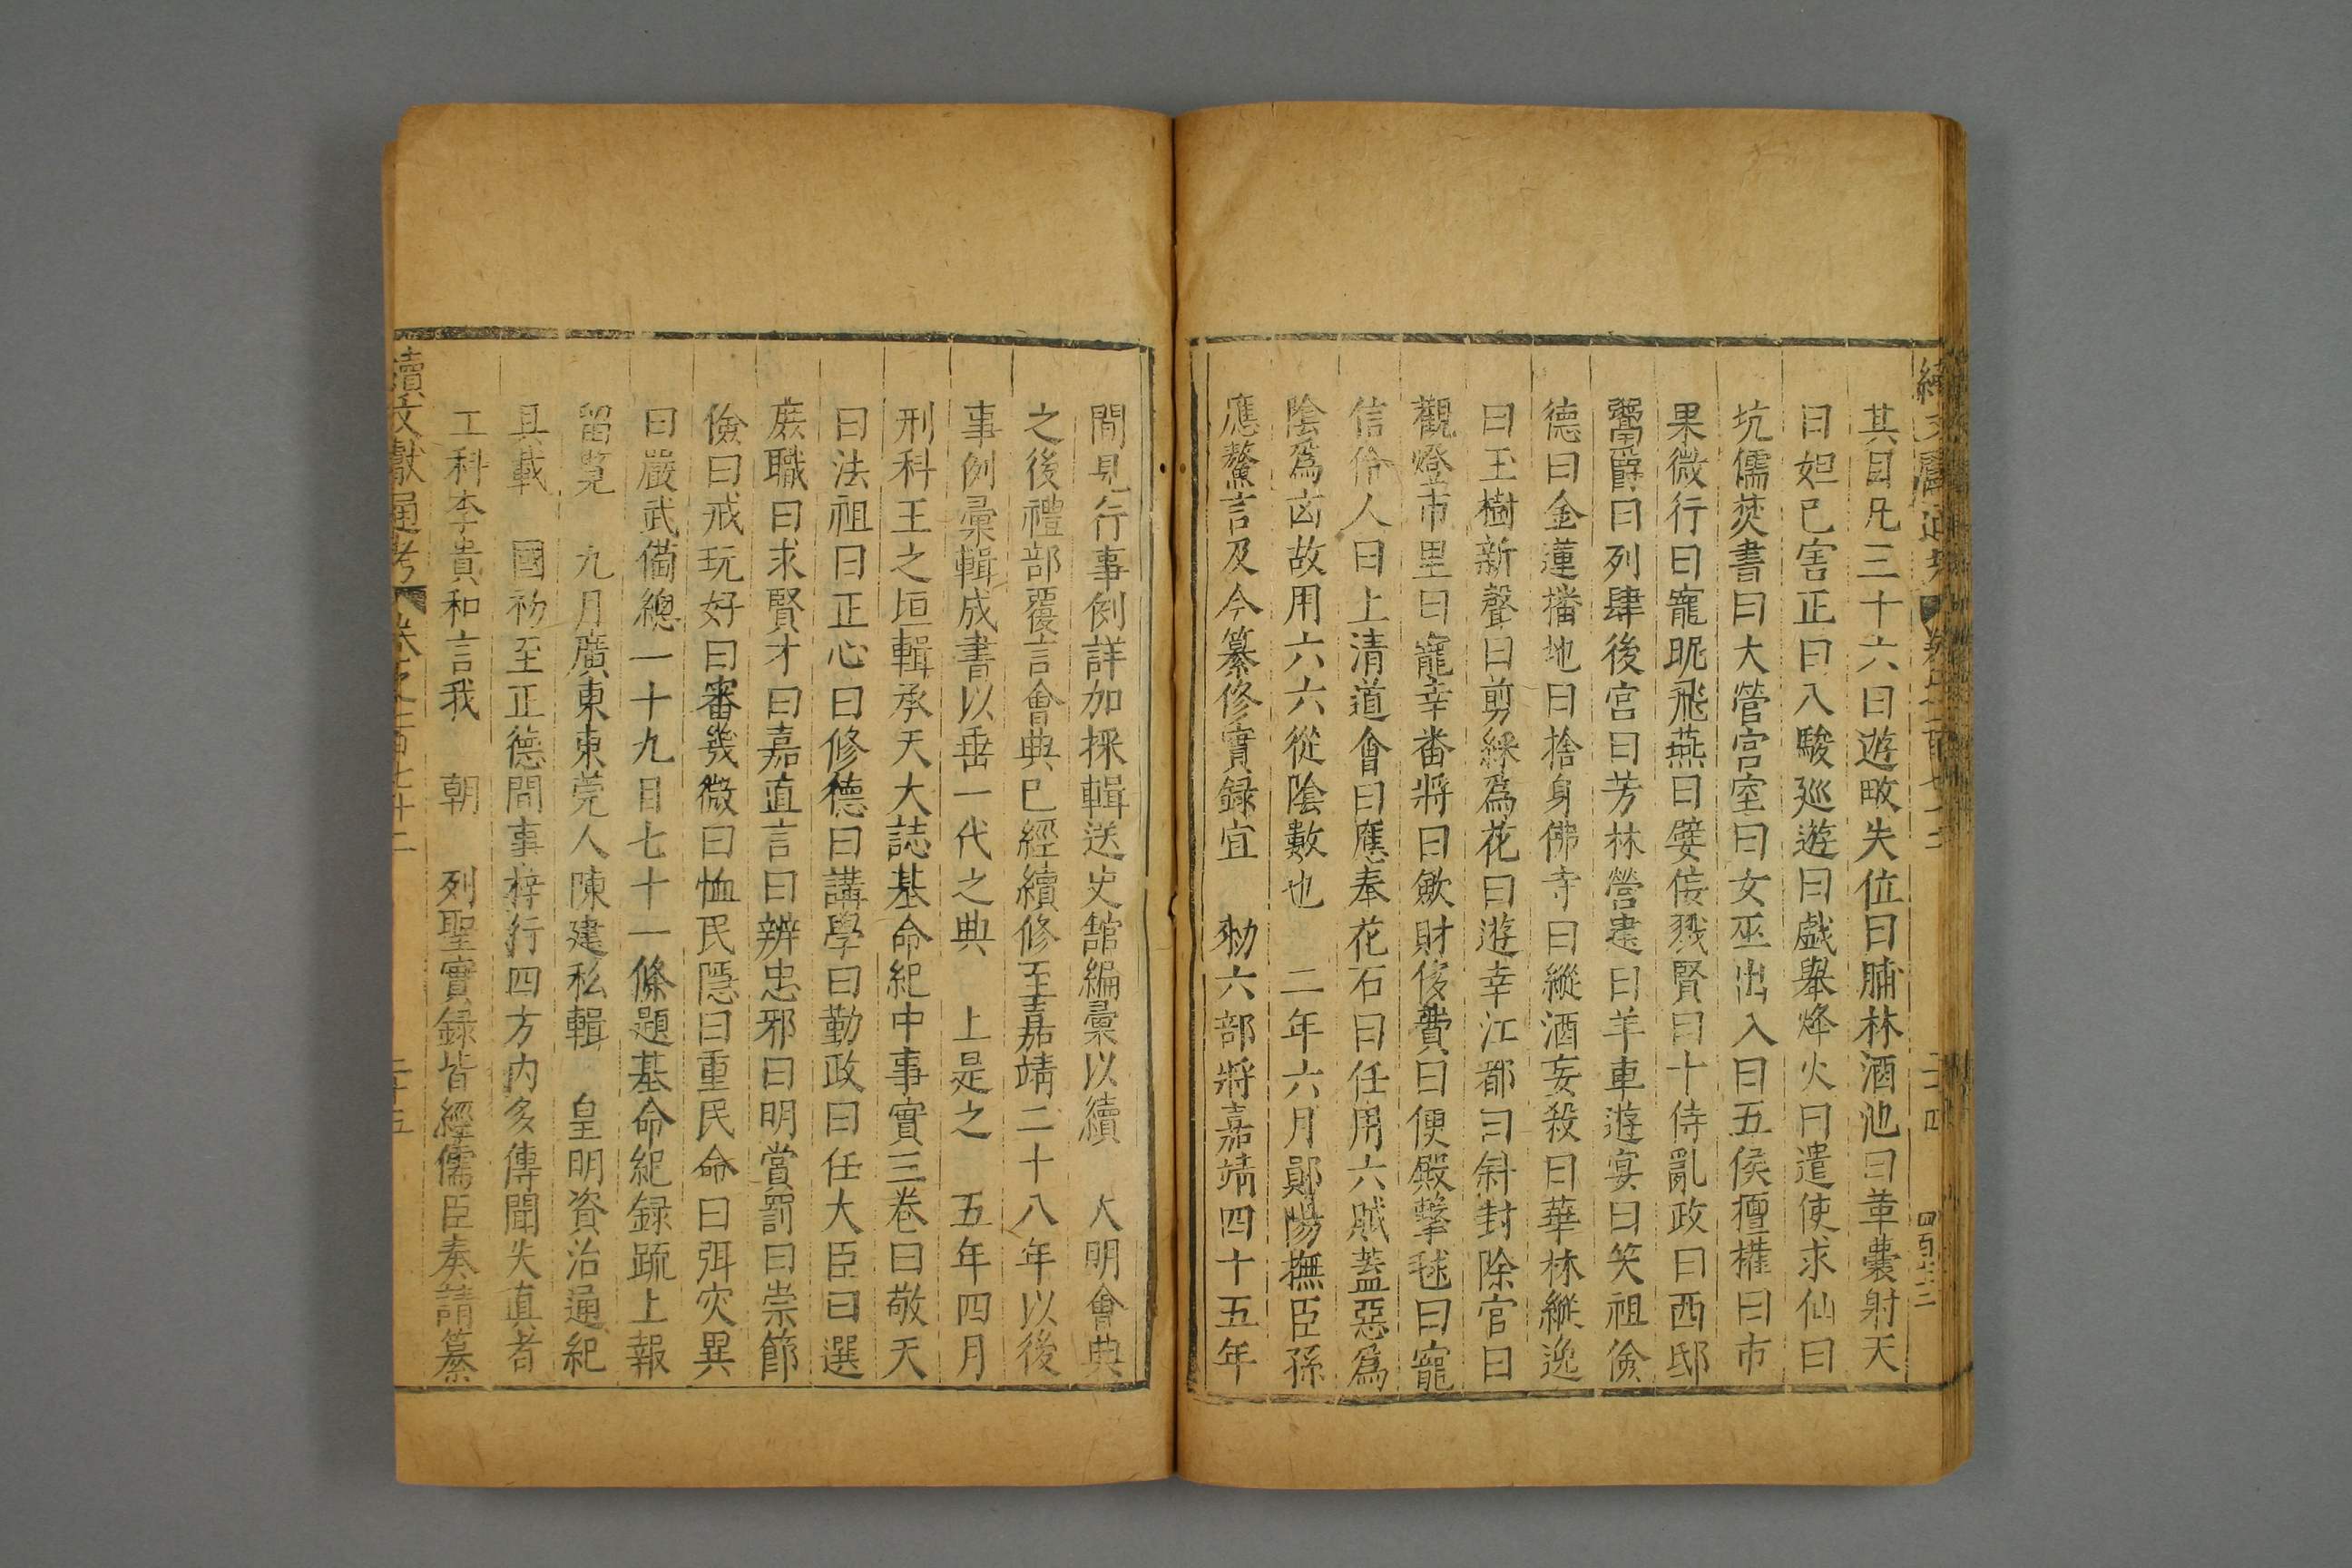 其目凡三十六曰遊畋失位曰脯林酒池曰革囊射天
曰妲已害正曰八駿廵遊曰戯舉烽火曰遣使求仙曰
坑儒焚書曰大營宫室曰女巫出入曰五侯擅權曰市
果微行曰寵昵飛燕曰嬖佞戮賢曰十侍亂政曰西邸
鬻爵曰列肆後宫曰芳林營建曰羊車遊宴曰笑祖儉
德曰金蓮布地曰捨身佛寺曰縱酒妄殺曰華林縱逸
曰玉樹新聲曰剪綵為花曰遊幸江都曰斜封除官曰
觀燈市里曰寵幸番將曰斂財侈費曰便殿擊毬曰寵
信伶人曰上清道會曰應奉花石曰任用六賊蓋惡為
陰為凶故用六六從陰數也 二年六月鄖陽撫臣孫
應鰲言及今纂修實録宜 勑六部將嘉靖四十五年
間見行事例詳加採輯送史館編彙以續 大明會典
之後禮部覆言會典已經續修至嘉靖二十八年以後
事例彙輯成書以垂一代之典 上是之 五年四月
刑科王之垣輯承天大誌基命紀中事實三卷曰敬天
曰法祖曰正心曰修德曰講學曰勤政曰任大臣曰選
庶職曰求賢才曰嘉直言曰辨忠邪曰明賞罰曰崇節
儉曰戒玩好曰審幾微曰恤民隱曰重民命曰弭灾異
曰嚴武備總一十九目七十一條題基命紀録疏上報
留覽 九月廣東東莞人陳建私輯 皇明資治通紀
具載 國初至正德間事梓行四方内多傳聞失真者
工科李貴和言我 朝 列聖實録皆經儒臣奏請纂
續文獻通考 卷之一百七十二 二十五